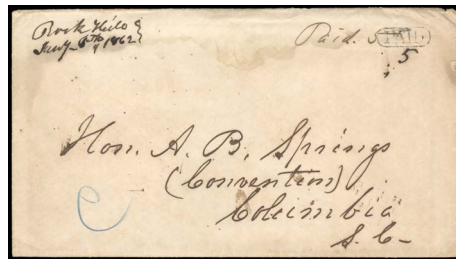 Rock Hill
Jany 8th 1862
Paid 5 PAID
5
Hon. A. B. Springs
(Convention)
Columbia
S. C-
C